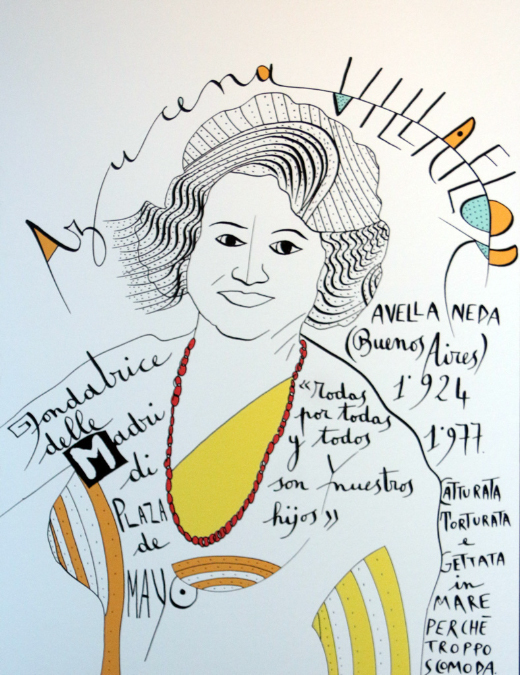 Azucena VILLAFLOR
AVELLA NEDA
(Buenos Aires)
1'924
1'977
Fondatrice
delle
Madri
di
PLAZA
de
MAYO
«Todas
por todas
y todos
son nuestros
hijos»
CATTURATA
TORTURATA
e
GETTATA
in
MARE
PERCHÈ
TROPPO
SCOMODA.